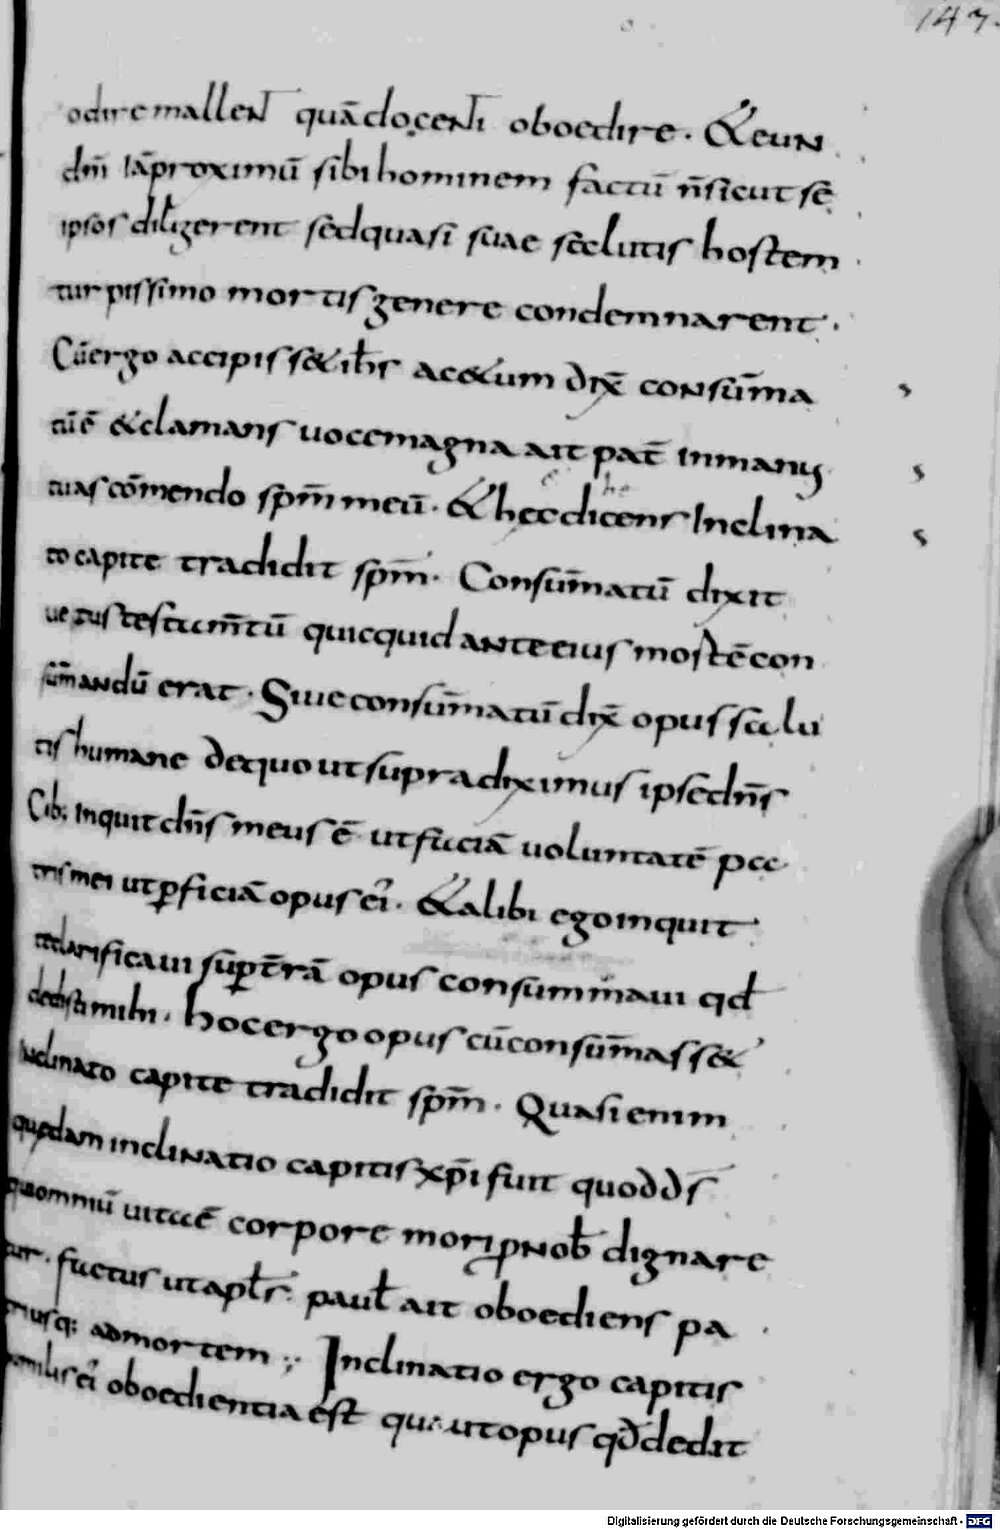 143.
odire mallent quā docenti oboedire. & eun
dm̄ tā proximū sibi hominem factū n̄ sicut sē
ipsos diligerent sed quasi suae seclutis hostem
turpissimo mortis genere condemnarent.
Cū ergo accipisset ih̄s acetum dix̄ consūma
tū ē & clamans uoce magna ait pat̄ in manus
tuas cōmendo sp̄m meū. & hec dicens Inclina
to capite tradidit sp̄m. Consūmatū dixit
uetus testam̄tū quicquid ante eius mortē con
sūmandū erat. Siue consūmatū dix̄ opus salu
tis humane de quo ut supra diximus ipse dn̄s
Cib; inquit dn̄s meus ē ut faciā uoluntatē pa
tris mei ut ꝑficiā opus ei. & alibi ego inquit
te clarificaui sup t̄rā opus consummaui qd̄
dedisti mihi. hoc ergo opus cū consūmasset
Inclinato capite tradidit sp̄m. Quasi enim
quedam inclinatio capitis xp̄i fuit quod d̄s
qui omniū uita ē corpore mori ꝓ nob̄ dignare
tur. factus ut apl̄s paul̄ ait oboediens pa
tri usq; ad mortem; Inclinatio ergo capitis
humilis ei oboedientia est qua ut opus qd̄ dedit
Digitalisierung gefördert durch die Deutsche Forschungsgemeinschaft - DFG